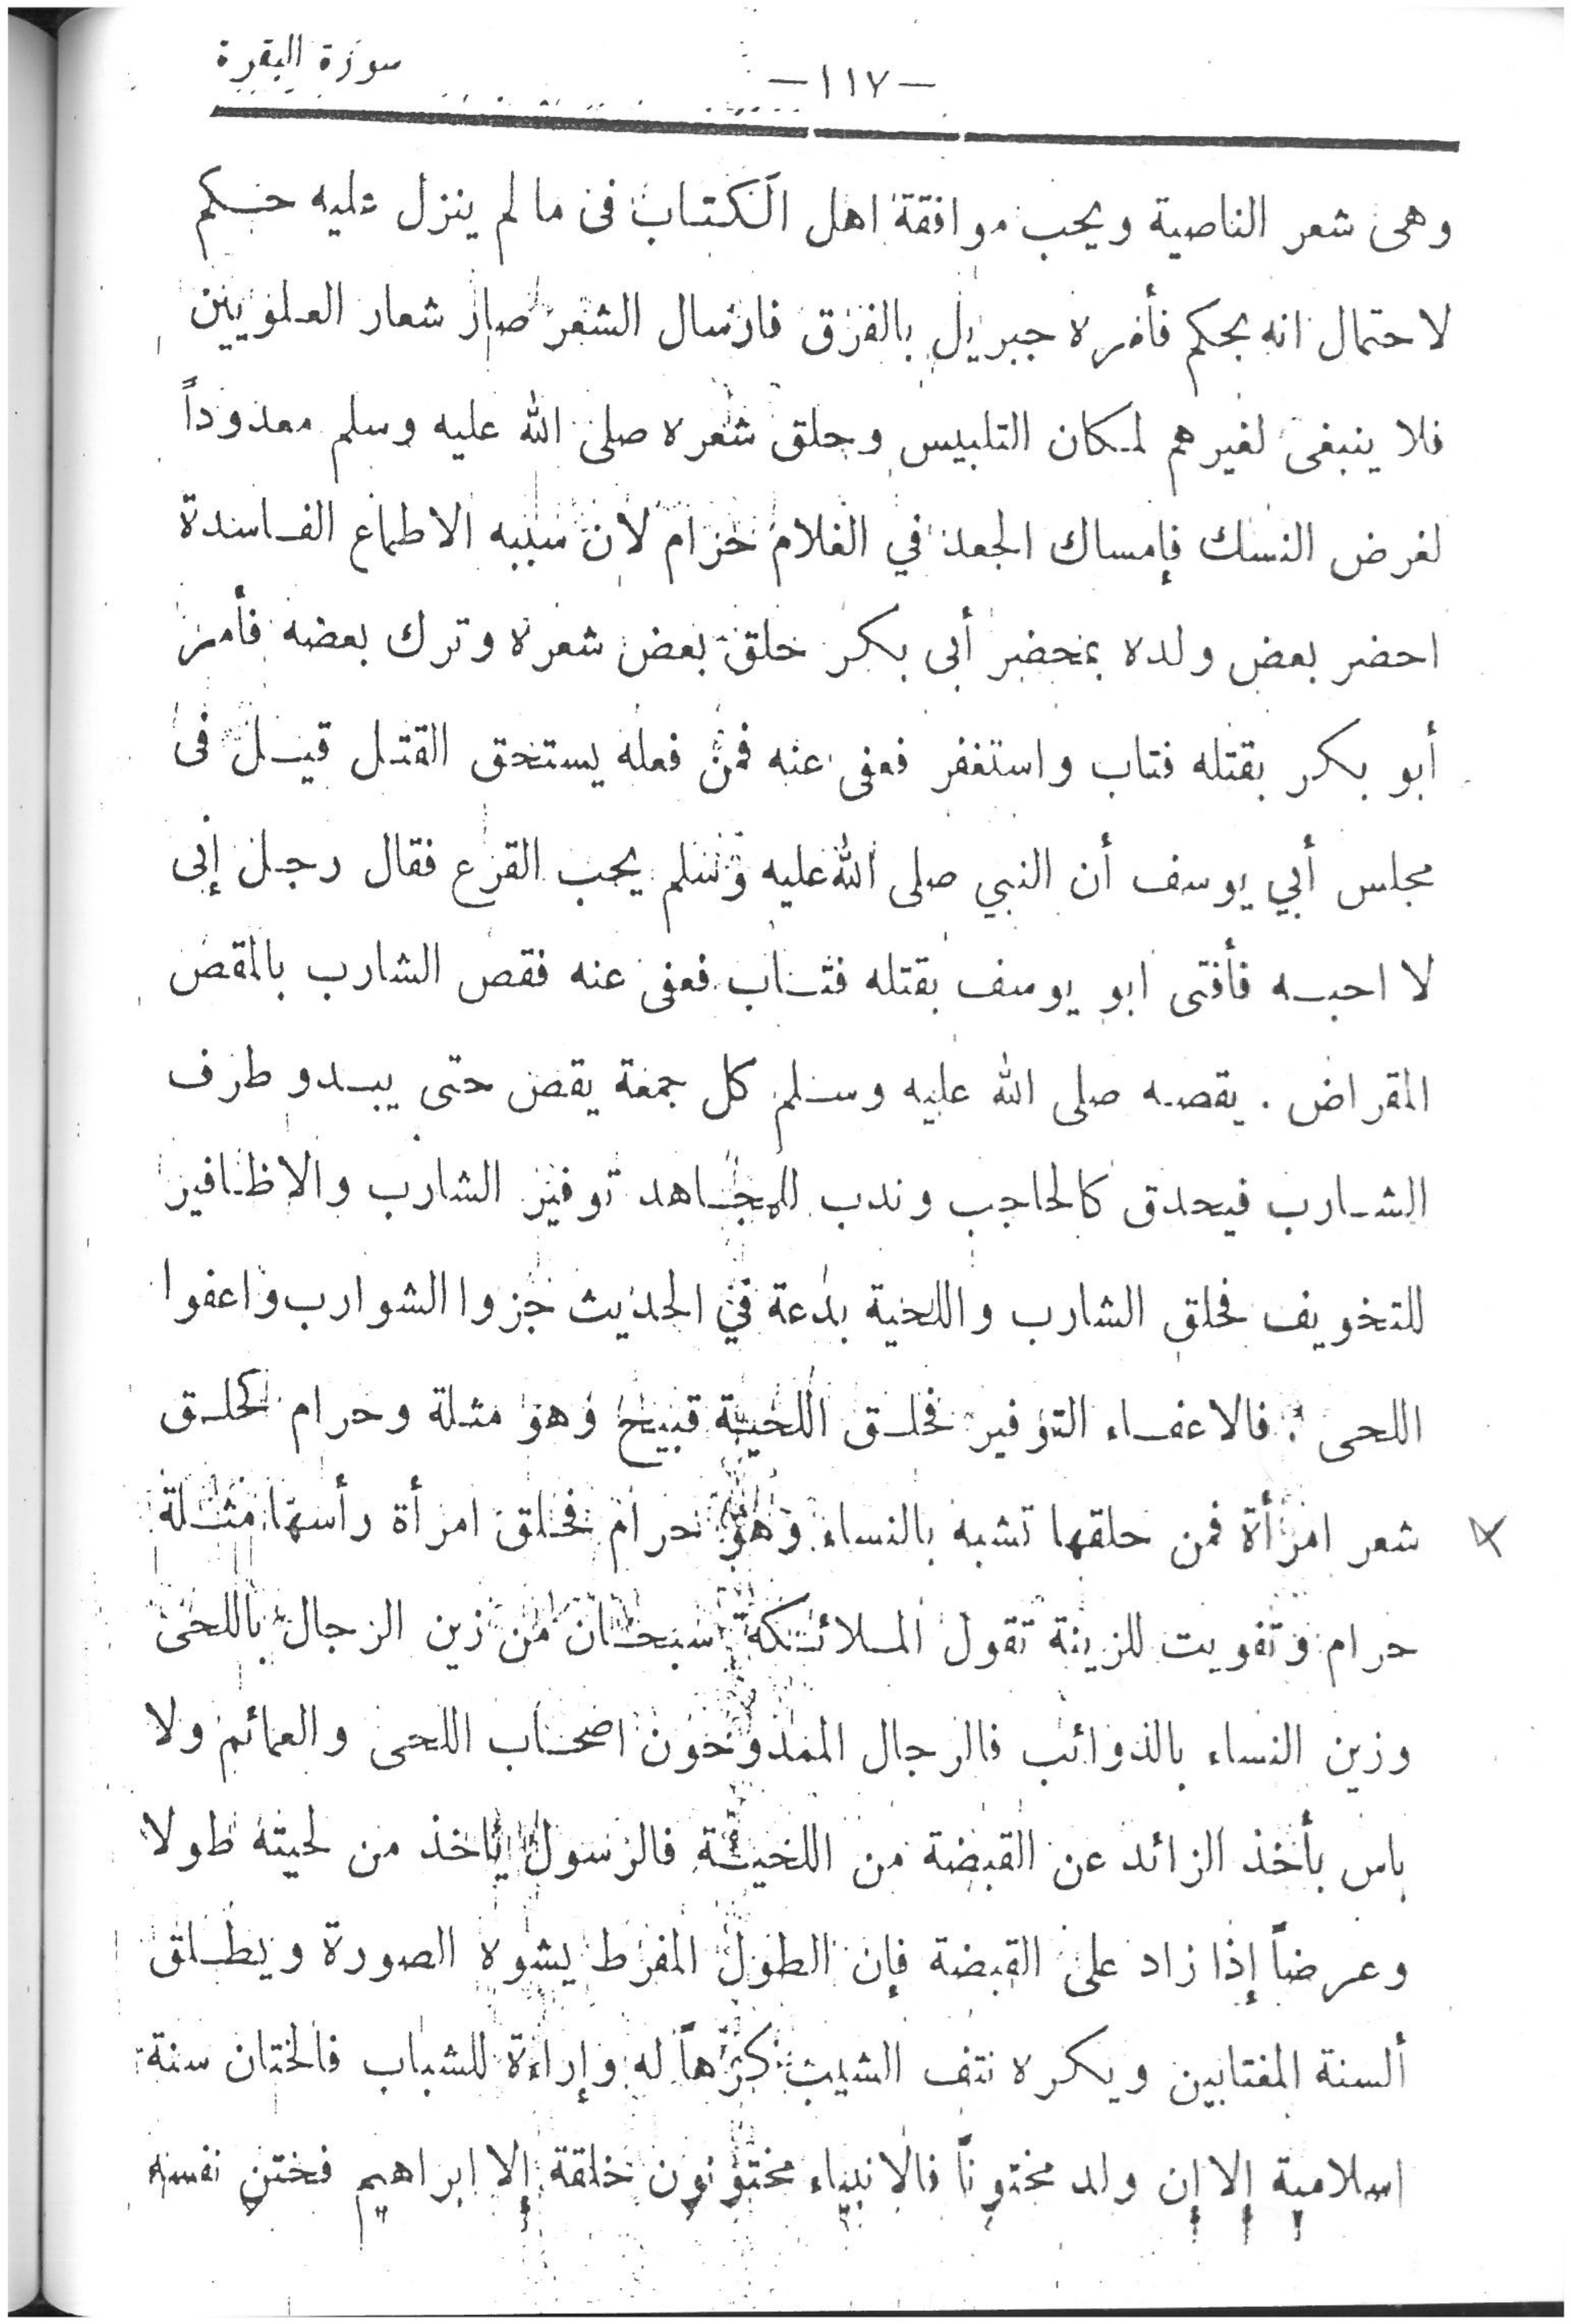 سورة البقرة
— ١١٧ —
وهى شعر الناصية ويحب موافقة اهل الكتاب فى ما لم ينزل عليه حكم
لاحتمال انه بحكم فأمره جبريل بالفرق فارسال الشعر صار شعار العلويين
فلا ينبغى لغيرهم لمكان التلبيس وحلق شعره صلى الله عليه وسلم معدوداً
لغرض النسك فإمساك الجعد في الغلام حرام لان سببه الاطماع الفاسدة
احضر بعض ولده بمحضر أبى بكر حلق بعض شعره وترك بعضه فأمر
أبو بكر بقتله فتاب واستغفر فعفى عنه فمن فعله يستحق القتل قيل فى
مجلس أبي يوسف أن النبي صلى الله عليه وسلم يحب القرع فقال رجل إنى
لا احبه فأفتى ابو يوسف بقتله فتاب فعفى عنه فقص الشارب بالمقص
المقراض . يقصه صلى الله عليه وسلم كل جمعة يقص حتى يبدو طرف
الشارب فيحدق كالحاجب وندب للمجاهد توفير الشارب والاظافير
للتخويف فحلق الشارب واللحية بدعة في الحديث جزوا الشوارب واعفوا
اللحى : فالاعفاء التوفير فحلق اللحية قبيح وهو مثلة وحرام كحلق
شعر امرأة فمن حلقها تشبه بالنساء وهو حرام فحلق امرأة رأسها مثلة
حرام وتفويت للزينة تقول الملائكة سبحان من زين الرجال باللحى
وزين النساء بالذوائب فالرجال الممدوحون اصحاب اللحى والعمائم ولا
باس بأخذ الزائد عن القبضة من اللحية فالرسول ياخذ من لحيته طولا
وعرضاً إذا زاد على القبضة فإن الطول المفرط يشوه الصورة ويطلق
ألسنة المغتابين ويكره نتف الشيب كرهاً له وإراءة للشباب فالختان سنة
اسلامية إلا إن ولد مختوناً فالانبياء مختونون خلقة إلا ابراهيم فختن نفسه